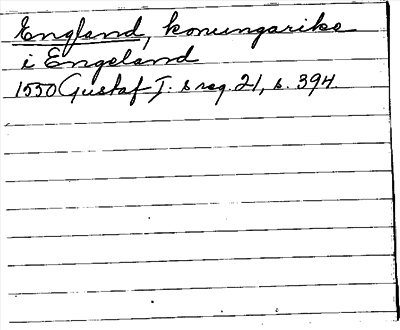 England, konungarike
i Engeland
1550 Gustaf I:s reg. 21, s. 394.